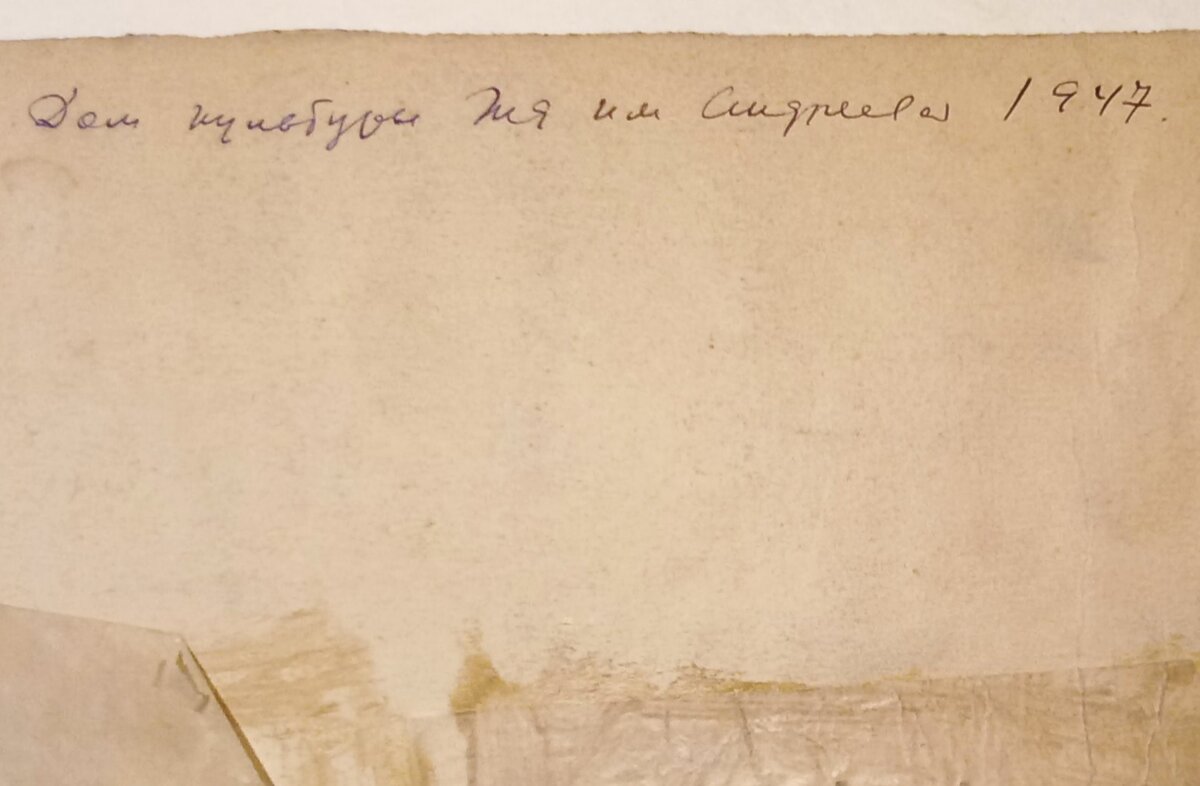 Дом культуры ЖД им Андреева 1947.